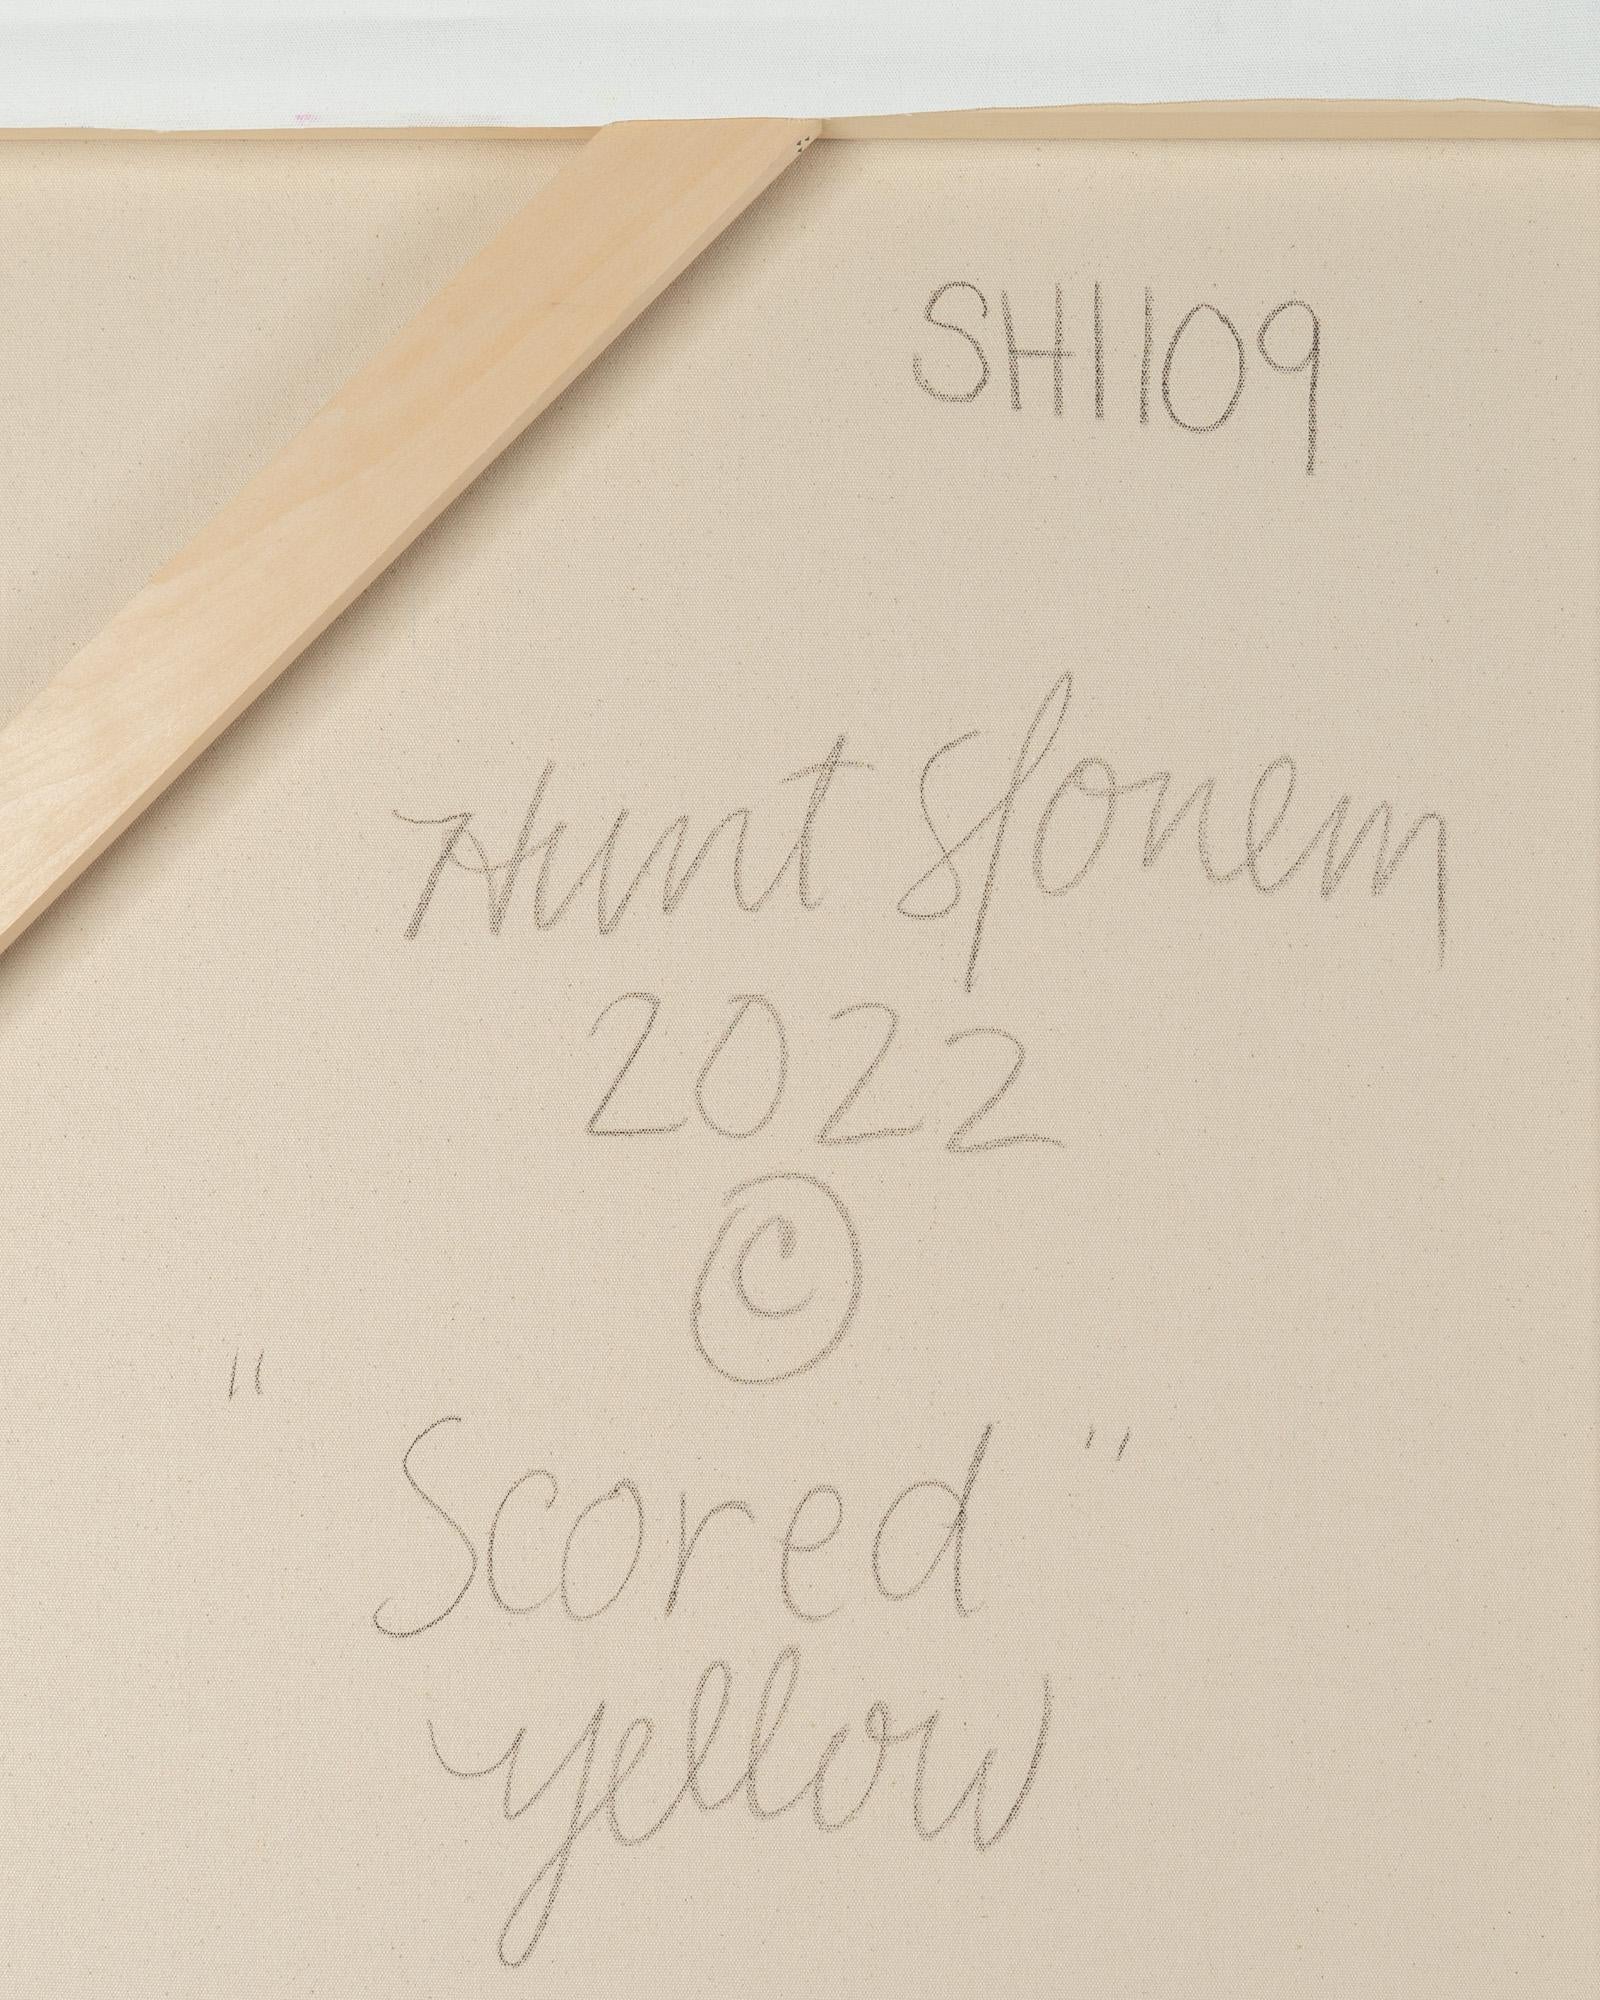 SH1109
Hunt Slonem
2022
©
"Scored"
yellow